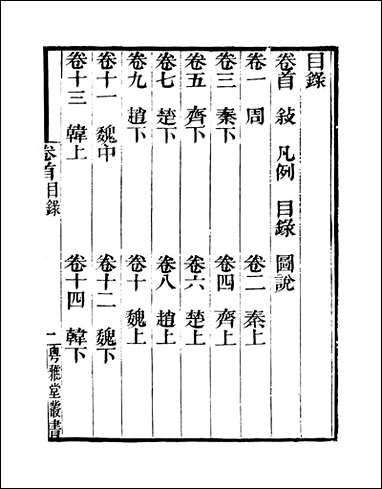 目錄
卷首 敍 凡例 目錄 圖說
卷一 周 卷二 秦上
卷三 秦下 卷四 齊上
卷五 齊下 卷六 楚上
卷七 楚下 卷八 趙上
卷九 趙下 卷十 魏上
卷十一 魏中 卷十二 魏下
卷十三 韓上 卷十四 韓下
卷首目錄 一 粵雅堂叢書